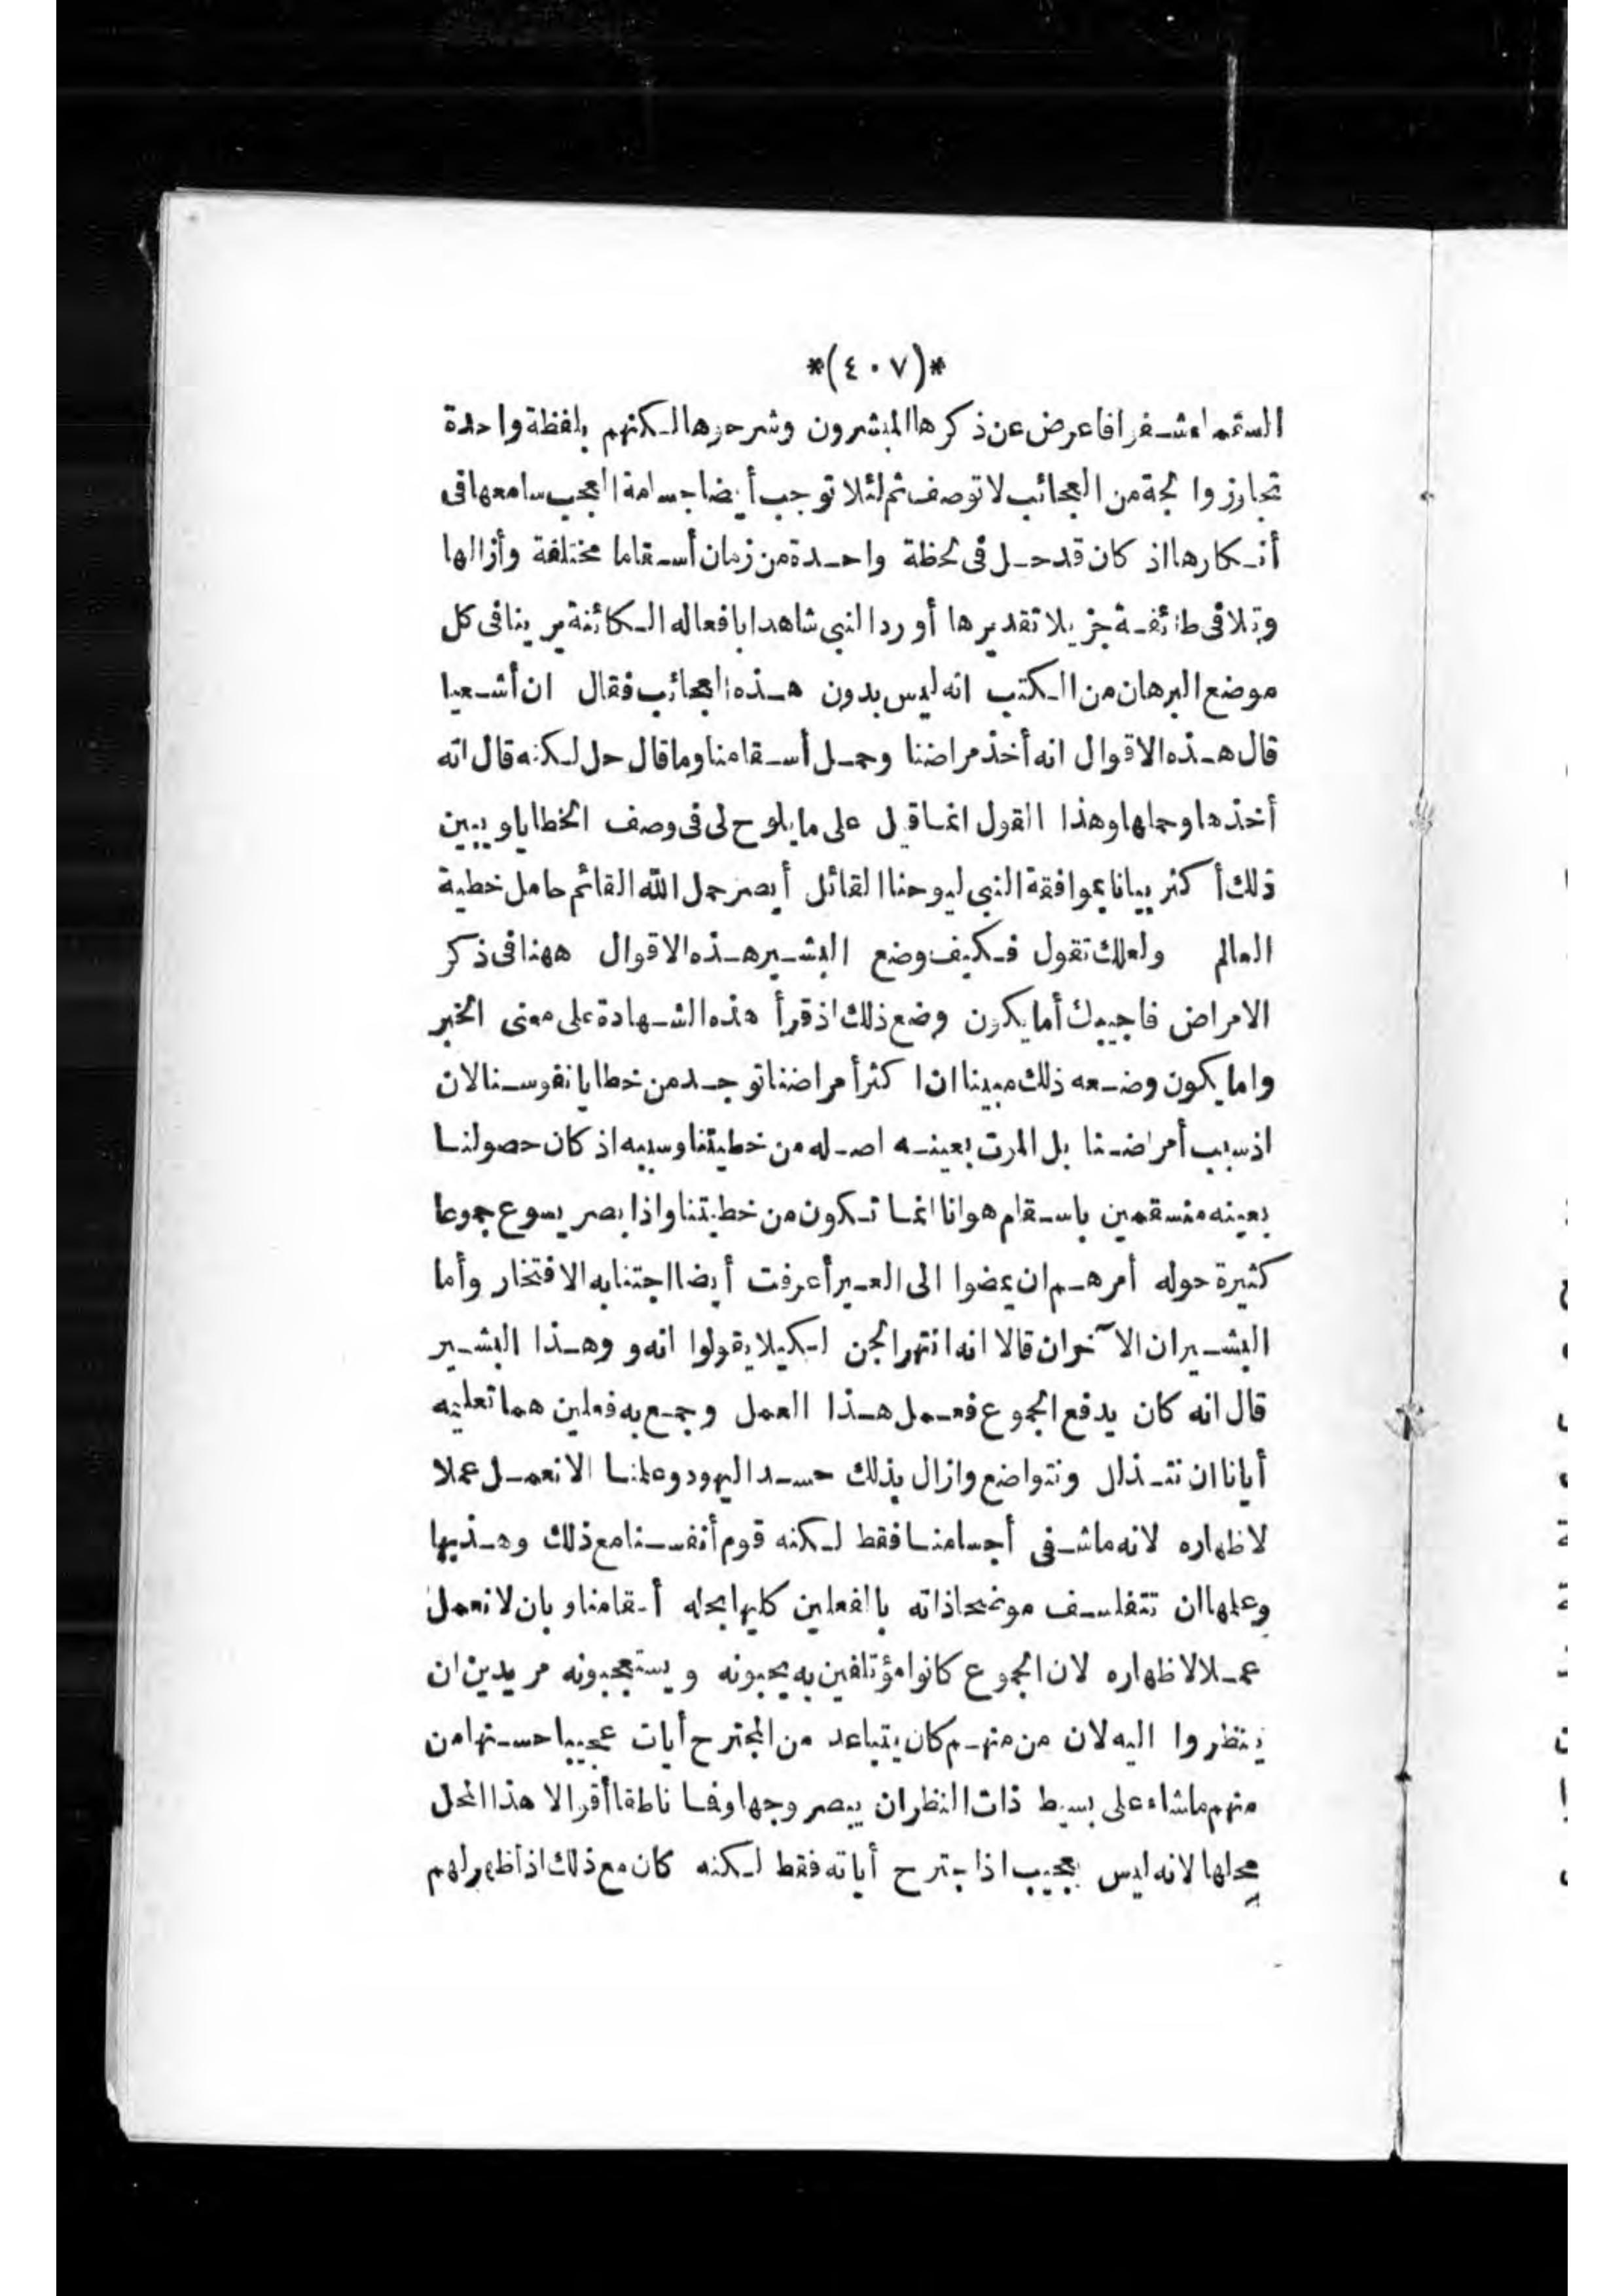 *(٤٠٧)*
فاعرض عن ذكرها المبشرون وشرحوها لكنهم بلفظة واحدة
لجة من العجائب لا توصف ثم لئلا توجب أيضا جسامة العجب سامعها فى
أنكارها اذ كان قد حل فى لحظة واحدة من زمان أسقاما مختلفة وأزالها
وتلافى تقديرها أورد النبى شاهدا بافعاله الكائنة يرينا فى كل
موضع البرهان من الكتب انه ليس بدون هذه العجائب فقال ان أشعيا
قال هذه الاقوال انه أخذ مراضنا وحمل أسقامنا وما قال حل لكنه قال انه
أخذها وحملها وهذا القول انما قيل على ما يلوح لى فى وصف الخطايا ويبين
ذلك أكثر بيانا بموافقة النبى ليوحنا القائل أبصر حمل الله القائم حامل خطية
العالم ولعلك تقول فكيف وضع البشير هذه الاقوال ههنا فى ذكر
الامراض فاجيبك أما يكون وضع ذلك اذ قرأ هذه الشهادة على معنى الخبر
واما يكون وضعه ذلك مبينا ان اكثر أمراضنا توجد من خطايا نفوسنا لان
اذ سبب أمراضنا بل الموت بعينه اصله من خطيتنا وسببه اذ كان حصولنا
بعينه منسقمين باسقام هوانا انما تكون من خطيتنا واذ ابصر يسوع جموعا
كثيرة حوله أمرهم ان يمضوا الى العبر أعرفت أيضا اجتنابه الافتخار وأما
البشيران الآخران قالا انه انتهر الجن لكيلا يقولوا انه و وهذا البشير
قال انه كان يدفع الجموع فعمل هذا العمل وجمع به فعلين هما تعليمه
أيانا ان نتذلل ونتواضع وازال بذلك حسد اليهود وعلمنا الا نعمل عملا
لاظهاره لانه ما شفى أجسامنا فقط لكنه قوم أنفسنا مع ذلك وهذبها
وعلمها ان تتفلسف موضحا ذاته بالفعلين كليهما بحله أسقامنا وبان لا نعمل
عملا لاظهاره لان الجموع كانوا مؤتلفين به يحبونه ويستعجبونه مريدين ان
ينظروا اليه لان من منهم كان يتباعد من المجترح أيات عجيبا حسنها من
منهم ما شاء على بسيط ذات النظر ان يبصر وجها وفما ناطقا أقوالا هذا المحل
محلها لانه ليس بعجيب اذا جترح أياته فقط لكنه كان مع ذلك اذ أظهر لهم